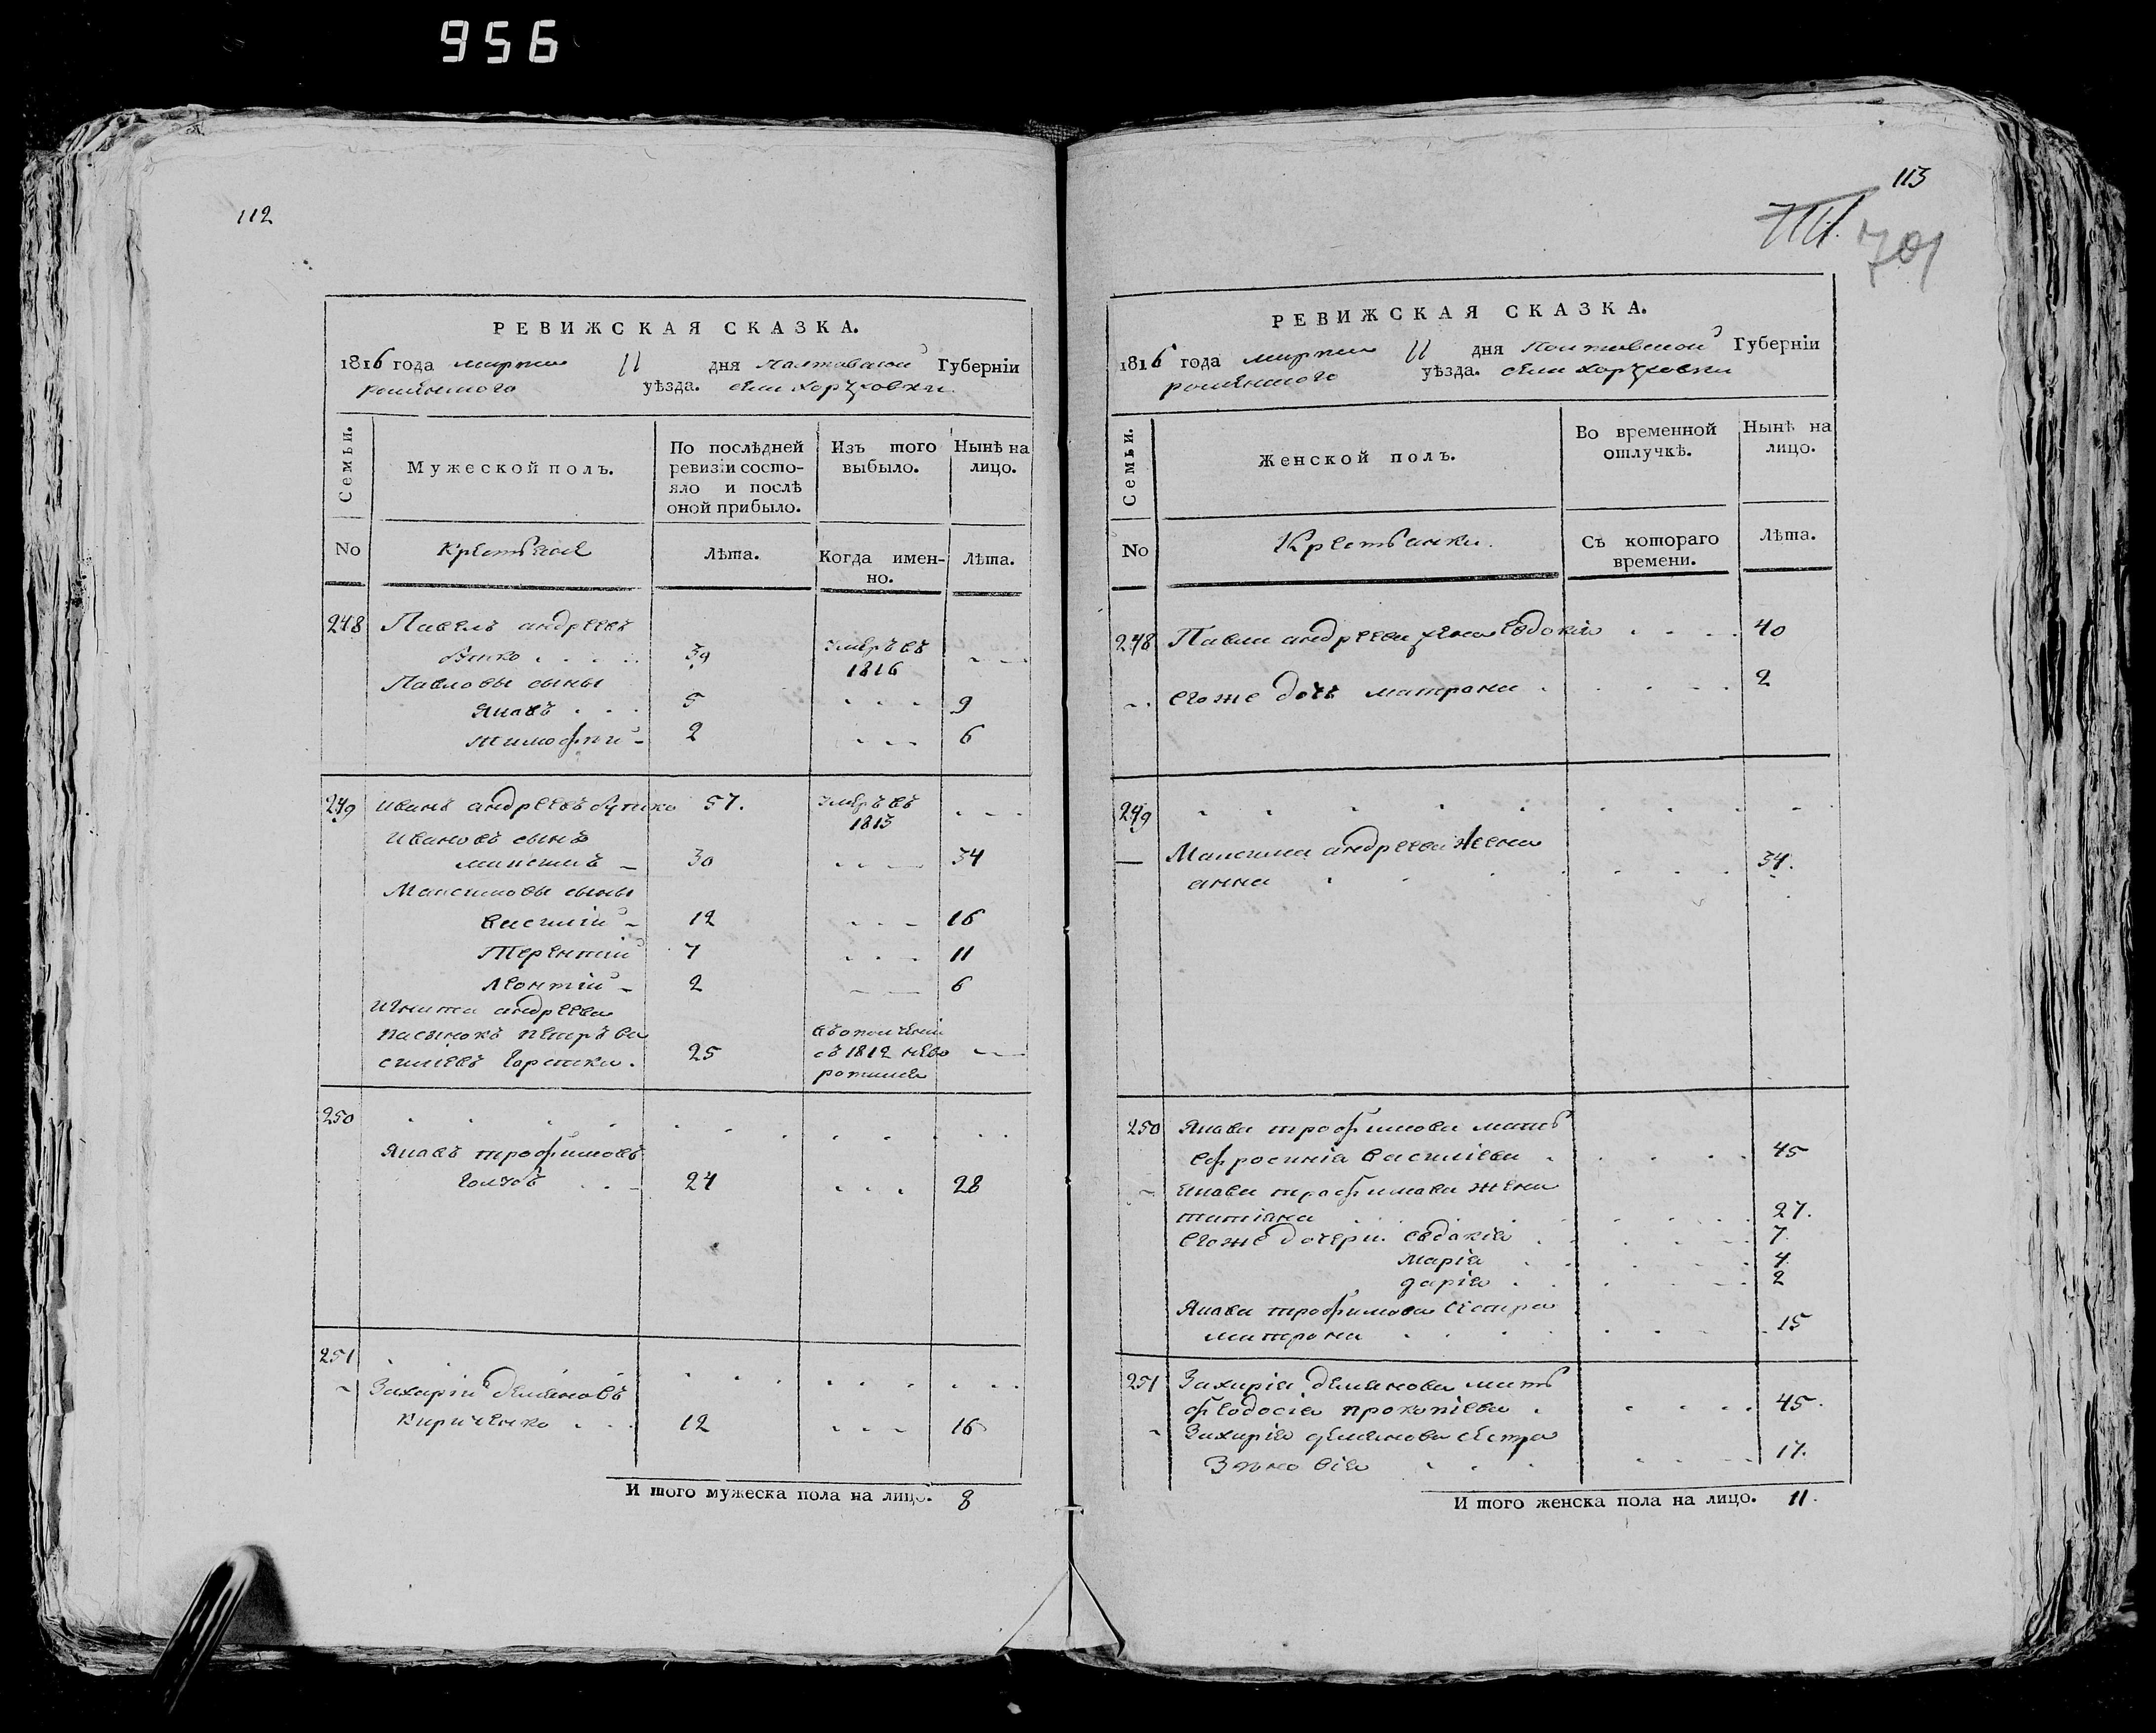 956
112
РЕВИЖСКАЯ СКАЗКА.
1816 года марта 11 дня Полтавской Губернїи
роменского уѣзда. села
Семьи.
Мужеской полъ.
По послѣдней ревизїи состояло и послѣ оной прибыло.
Изъ того выбыло.
Нынѣ на лицо.
No
Крестьяне
Лѣта.
Когда именно.
Лѣта.
248 Павелъ андреевъ
39 умеръ въ 1816
Павловы сыны
Яковъ 5 9
тимофей 2 6
249 иванъ андреевъ 57. умеръ въ 1813
ивановъ сынъ
максимъ 30 34
Максимовы сыны
василїй 12 16
Терентїй 7 11
Леонтїй 2 6
игната андреева
пасынокъ петръ ва
силїевъ 25 съ 1812 нево
ротился
250
Яковъ трофимовъ
24 28
251
Захарїй демяновъ
Кириченко 12 16
И того мужеска пола на лицо. 8
113
701
РЕВИЖСКАЯ СКАЗКА.
1816 года марта 11 дня Полтавской Губернїи
роменского уѣзда. села
Семьи.
Женской полъ.
Во временной отлучкѣ.
Нынѣ на лицо.
No
Крестьянки.
Съ котораго времени.
Лѣта.
248 Павла андреева жена евдокїя 40
егоже дочь матрона 2
249
Максима андреева жена
анна 34.
250 Якова трофимова мать
ефросинїя василїева 45
якова трофимова жена
татїяна 27.
егоже дочери евдокїя 7
марїя 4
дарїя 2
Якова трофимова сестра
матрона 15
251 Захарїя демянова мать
феодосїя прокопїева 45.
Захарїя демянова сестра
Зѣновїя 17.
И того женска пола на лицо. 11.